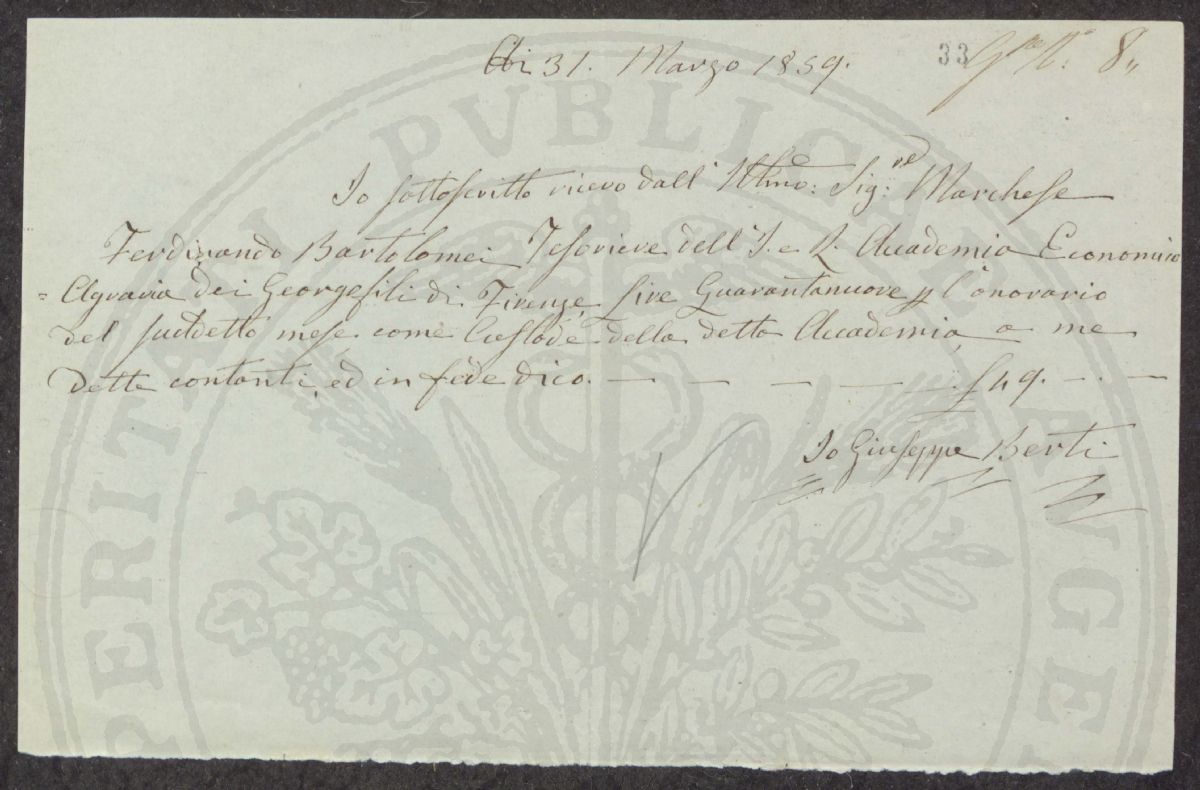 Adi 31. Marzo 1859.
33 Gle. N.° 8„
Io sottoscritto ricevo dall' Illmo: Sig:re Marchese
Ferdinando Bartolomei Tesoriere dell' I. e R. Accademia Economico
= Agraria dei Georgofili di Firenze, Lire Quarantanuove p l'onorario
del suddetto mese come Custode della detta Accademia, a me
dette contanti, ed in fede dico. — — — — — £ 49. — · —
Io Giuseppe Berti
PERITAM PVBLICAE AVGE